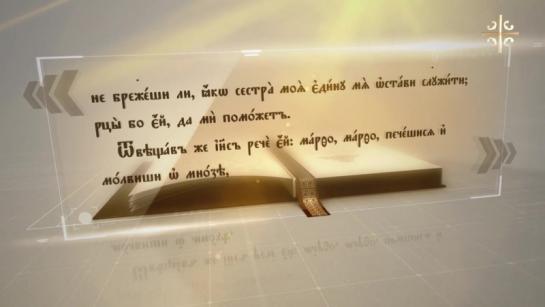 не бреже́ши ли, ꙗ҆́кѡ сестра̀ моѧ̀ є҆ди́ну мѧ̀ ѡ҆ста́ви слꙋжи́ти;
рцы̀ бо є҆́й, да мѝ помо́жетъ.
Ѿвѣща́въ же і҆и҃съ речѐ є҆́й: ма́рѳо, ма́рѳо, пече́шисѧ и҆
мо́лвиши ѡ҆ мно́зѣ,